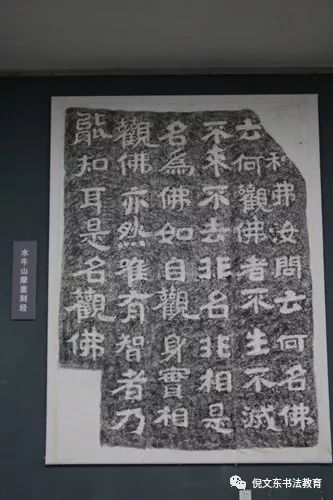 利弗汝問云何名佛
云何觀佛者不生不滅
不来不去非名非相是
名為佛如自觀身實相
觀佛亦然唯有智者乃
能知耳是名觀佛
水牛山摩崖刻经
倪文东书法教育